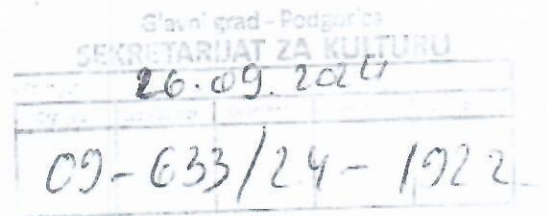 Glavni grad - Podgorica
SEKRETARIJAT ZA KULTURU
26.09.2024
09-633/24-1922